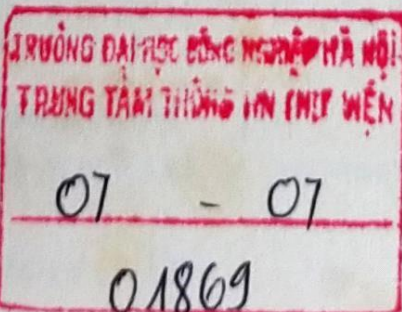 TRƯỜNG ĐẠI HỌC CÔNG NGHIỆP HÀ NỘI
TRUNG TÂM THÔNG TIN THƯ VIỆN
07 - 07
01869